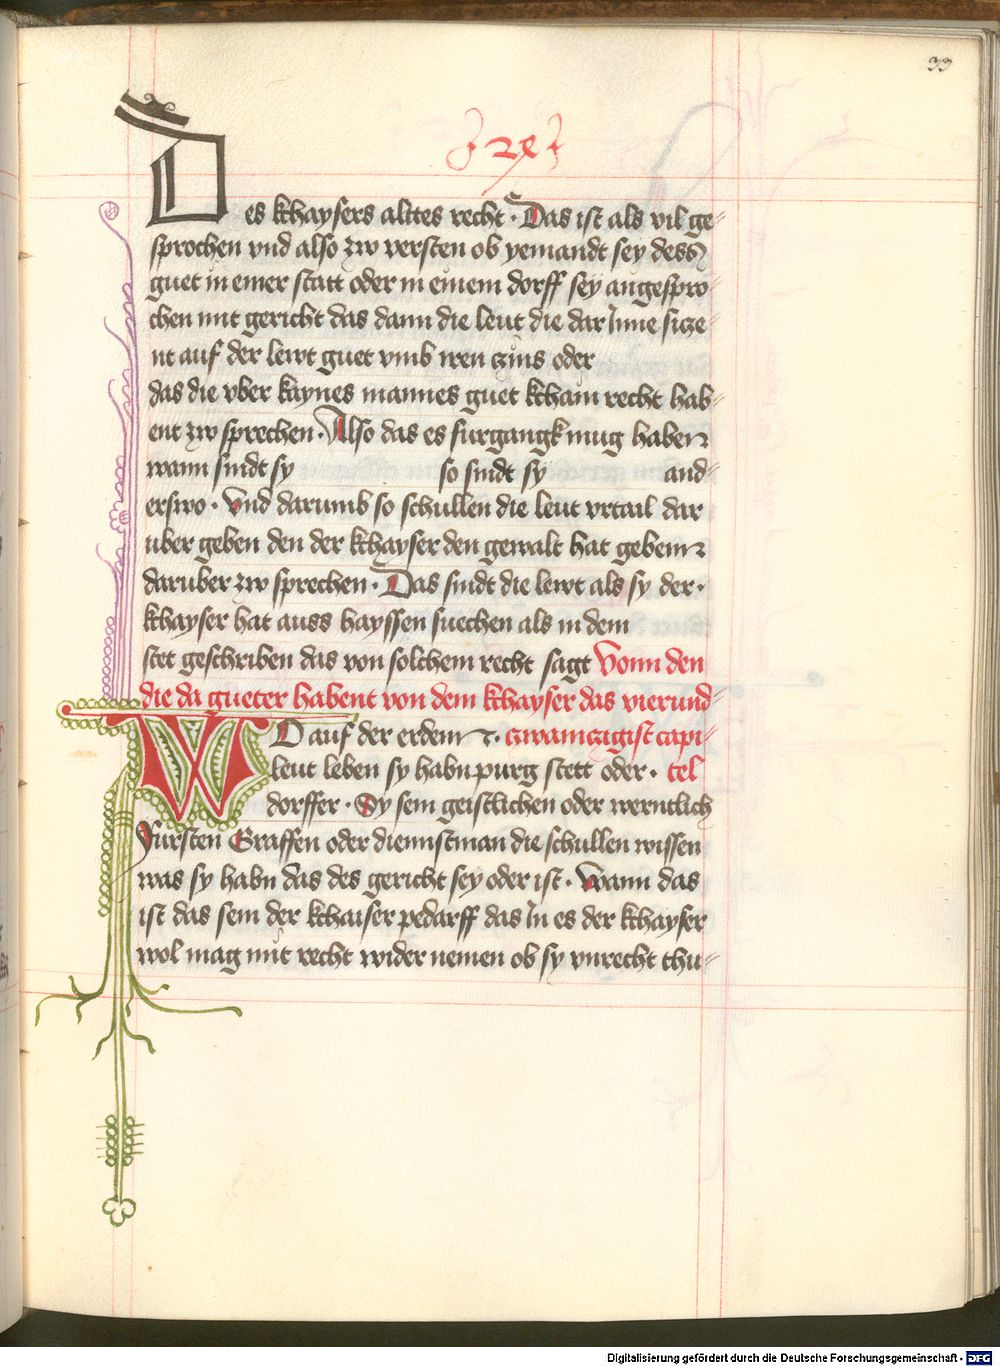 33
29
Des kthaysers alttes recht · Das ist als vil ge⸗
sprochen vnd also zw versten ob yemandt sey dess
guet in einer statt oder in einem dorff sey angespro⸗
chen mit gericht das dann die leut die dar Inne size⸗
nt auf der lewt guet vmb iren czins oder
das die vber kaynes mannes guet ktham recht hab⸗
ent zw sprechen · Also das es furgangk mug haben
wann sindt sy so sindt sy and⸗
erswo · Vnd darumb so schullen die leut vrtail dar
uber geben den der kthayser den gewalt hat geben
daruber zw sprechen · Das sindt die lewt als sy der ·
kthayser hat auss hayssen suechen als in dem
stet geschriben das von solchem recht sagt Vonn den
die da gueter habent von dem kthayser das vierund⸗
WO auf der erdem ⁊ · czwainczigist capi⸗
leut leben sy habn purg stett oder · tel
dorffer · Sy sein geistlichen oder werntlich
Fursten Graffen oder diennstman die schullen wissen
was sy habn das des gericht sey oder ist · Wann das
ist das sein der kthaiser pedarff das In es der kthayser
wol mag mit recht wider nemen ob sy vnrecht thu⸗
Digitalisierung gefördert durch die Deutsche Forschungsgemeinschaft - DFG